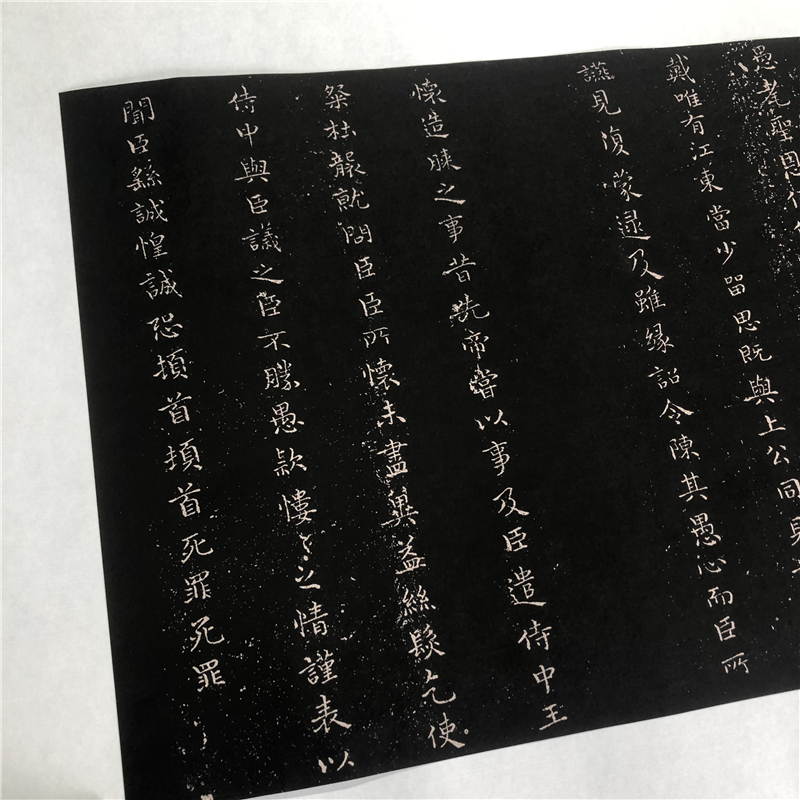 愚耄聖恩低
戴唯有江東當少留思既與上公同見
讌見復蒙逮及雖緣詔令陳其愚心而臣所
懷造膝之事昔先帝嘗以事及臣遣侍中王
粲杜襲就問臣臣所懷未盡冀益絲髮乞使
侍中與臣議之臣不勝愚款慺〻之情謹表以
聞臣繇誠惶誠恐頓首頓首死罪死罪